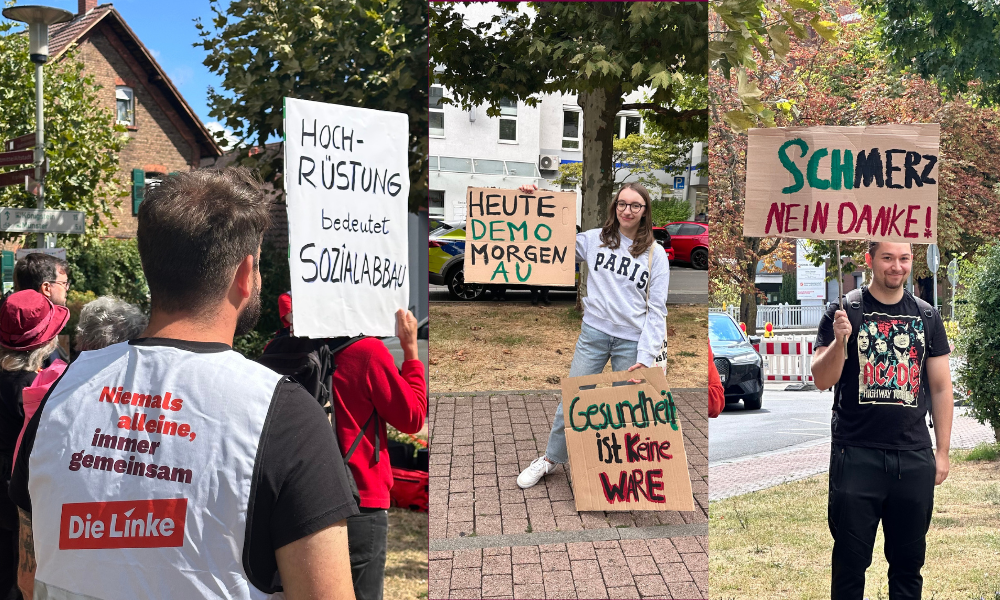 HOCH-
RÜSTUNG
bedeutet
SOZIALABBAU
Niemals
alleine,
immer
gemeinsam
Die Linke
HEUTE
DEMO
MORGEN
AU
PARIS
Gesundheit
ist Keine
WARE
SCHMERZ
NEIN DANKE!
AC/DC
HIGHWAY TO HELL